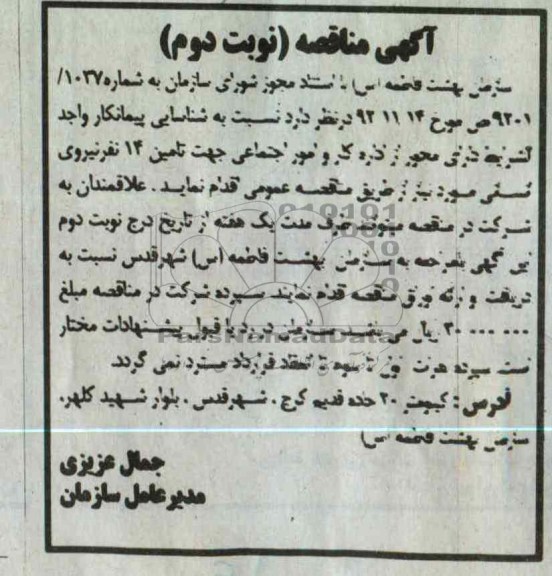 آگهی مناقصه (نوبت دوم)
سازمان بهشت فاطمه (س) با استناد مجوز شورای سازمان به شماره ۱۰۳۷/
۹۲۰۱ ص مورخ ۱۴ ۱۱ ۹۲ درنظر دارد نسبت به شناسایی پیمانکار واجد
الشرایط دارای مجوز از اداره کار و امور اجتماعی جهت تامین ۱۴ نفرنیروی
مورد نیاز از طریق مناقصه عمومی اقدام نماید. علاقمندان به
شرکت در مناقصه میتوانند ظرف مدت یک هفته از تاریخ درج نوبت دوم
این آگهی با مراجعه به سازمان بهشت فاطمه (س) شهرقدس نسبت به
دریافت و ارائه اوراق مناقصه اقدام نمایند سپرده شرکت در مناقصه مبلغ
۲۰ ۰۰۰ ۰۰۰ ریال می باشد سازمان در رد یا قبول پیشنهادات مختار
است سپرده نفرات اول تا سوم تا انعقاد قرارداد مسترد نمی گردد
آدرس: کیلومتر ۲۰ جاده قدیم کرج، شهرقدس، بلوار شهید کلهر،
سازمان بهشت فاطمه (س)
جمال عزیزی
مدیرعامل سازمان
ParsNamadData